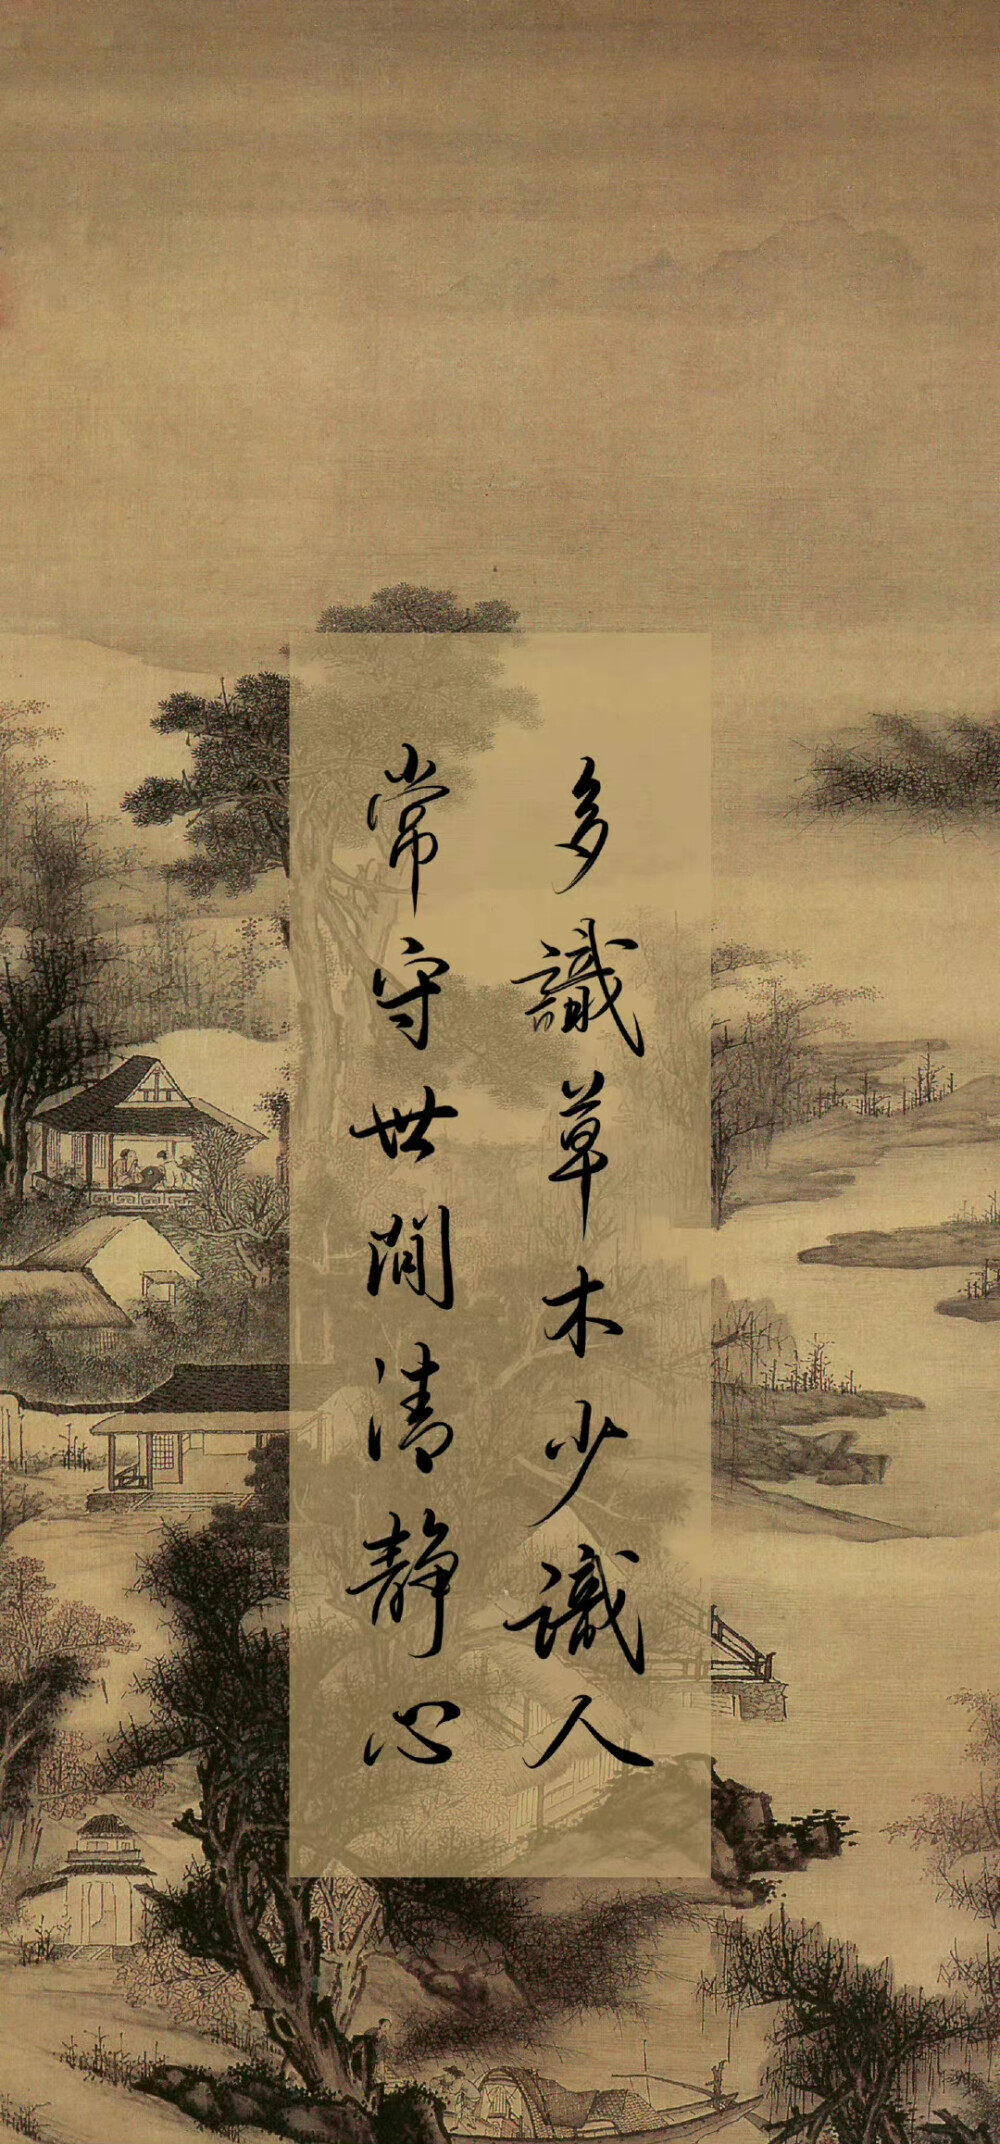 多識草木少識人
常守世間清靜心